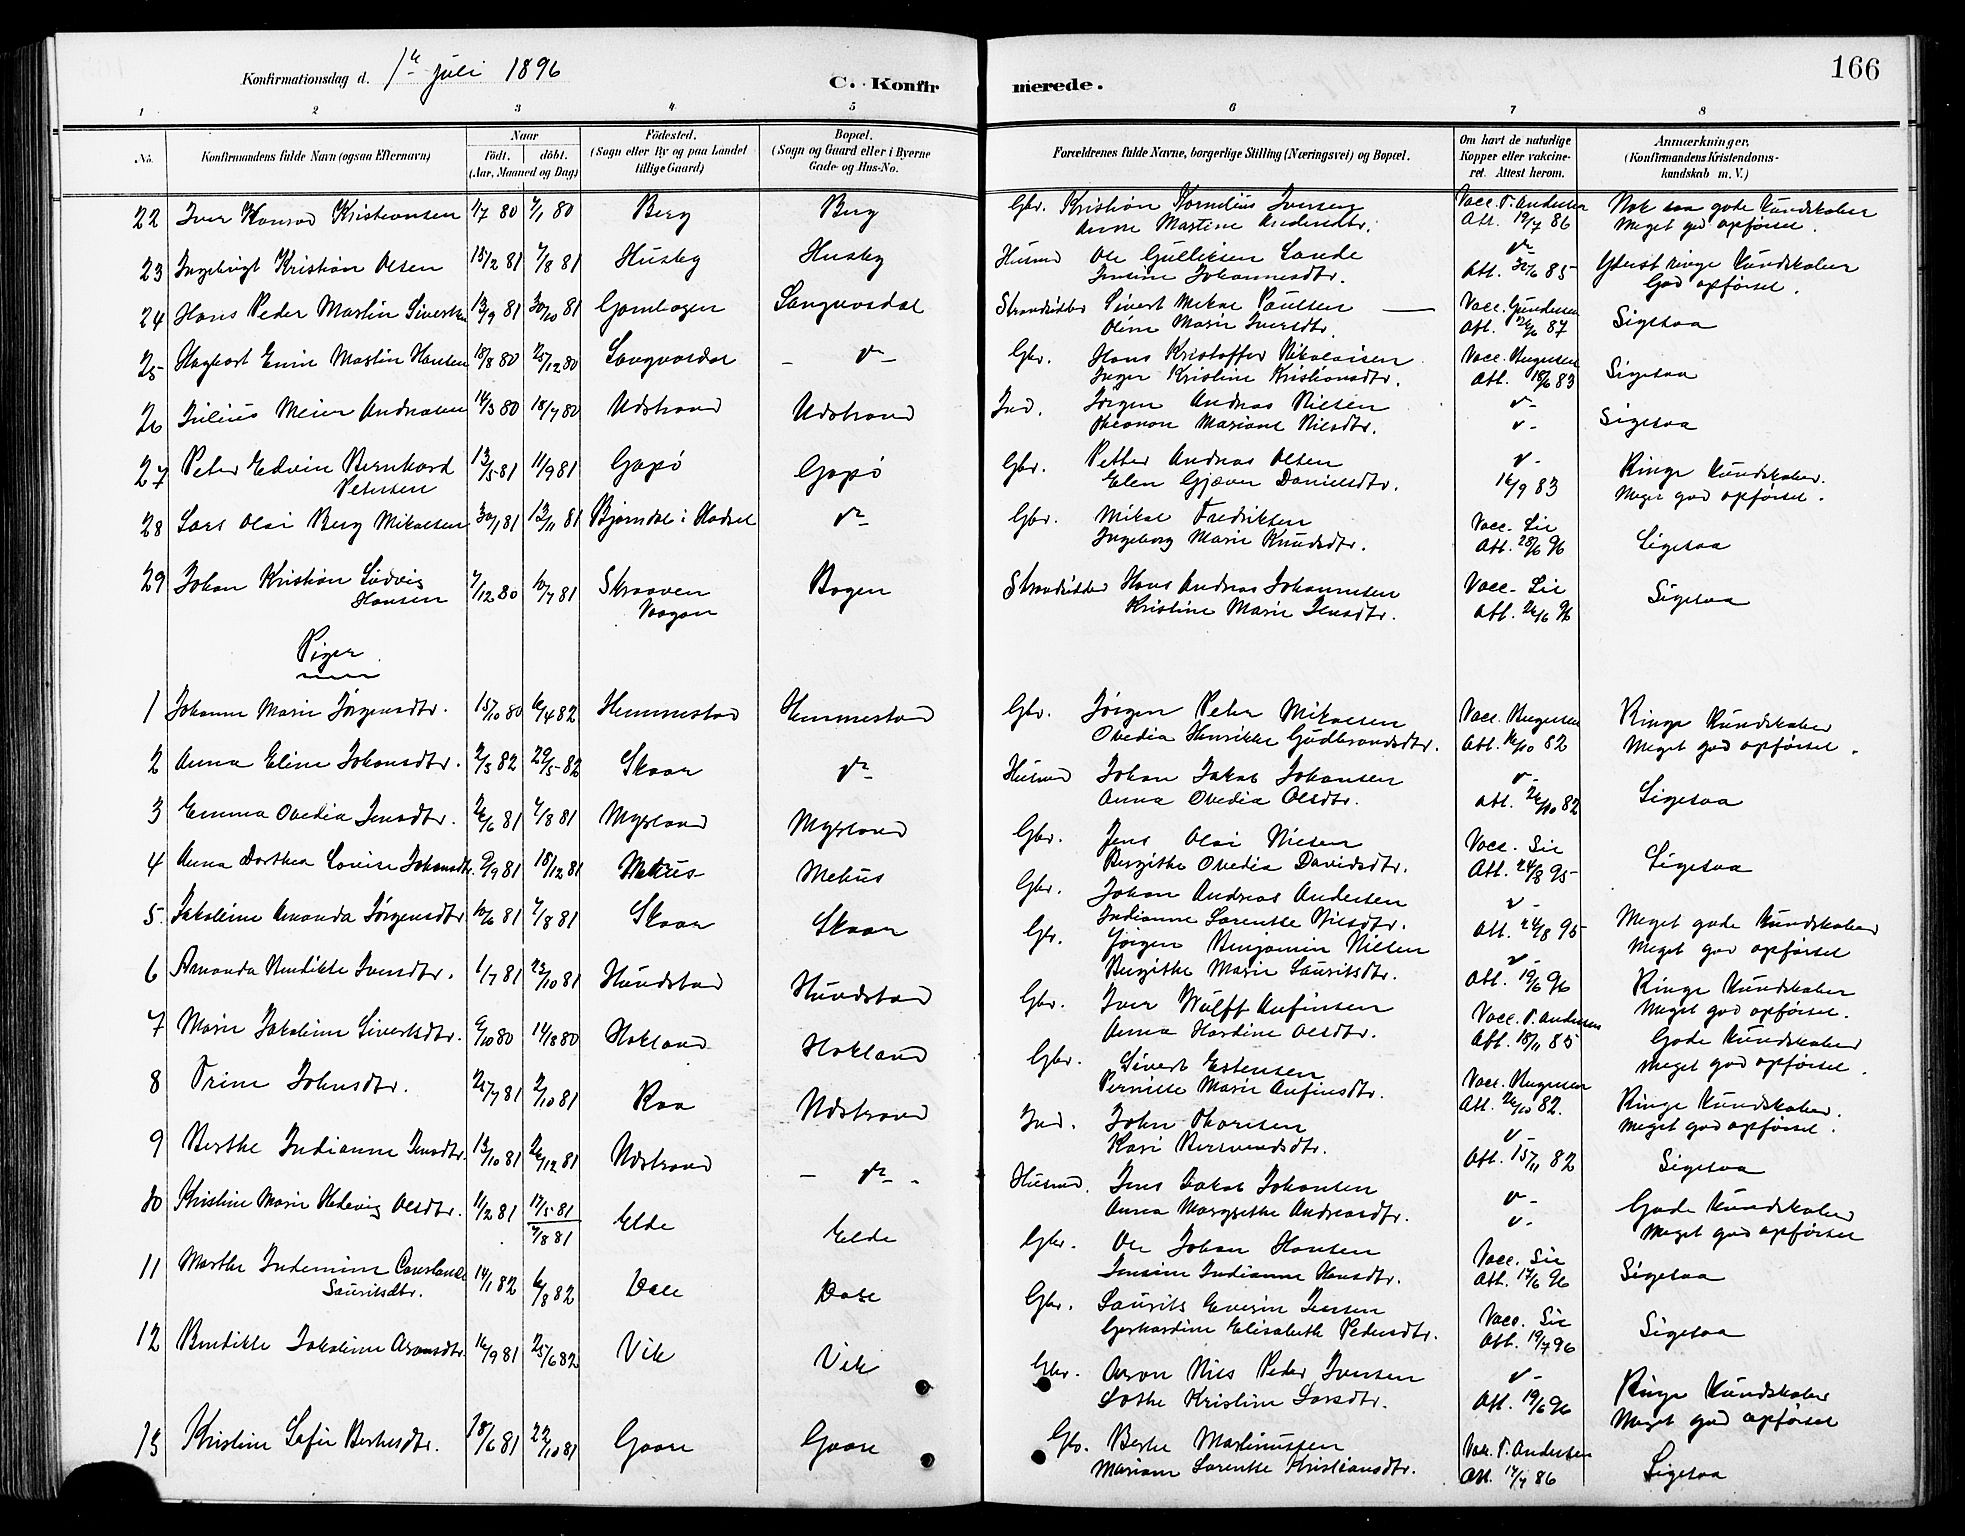 Konfirmationsdag d. 1te juli 1896
C. Konfirmerede.
166
1 2 3 4 5 6 7 8
No. Konfirmandens fulde Navn (ogsaa Efternavn) Naar födt. döbt. (Aar, Maaned og Dag) Födested. (Sogn eller By og paa Landet tillige Gaard) Bopæl. (Sogn og Gaard eller i Byerne Gade- og Hus-No. Forældrenes fulde Navne, borgerlige Stilling (Næringsvei) og Bopæl. Om havt de naturlige Kopper eller vakcineret. Attest herom. Anmærkninger, (Konfirmandens Kristendomskundskab m. V.)
22 Iver Konrad Kristiansen 1/7 80 80 Berg Berg Gbr. Kristian Kornelius Iversen Vacc. T. Andersen Nok saa gode Kundskaber
Anne Martine Andersdtr. Att. 19/7 86 Meget god opførsel.
23 Ingebrigt Kristian Olsen 15/2 81 7/8 81 Husby Husby Husmd Ole Gulliksen Sande Ytterst ringe Kundskaber
Jensine Johannesdtr. Att. 30/6 85 God opførsel.
24 Hans Peder Martin Sivertsen 13/9 81 30/10 81 Gambogen Langvasdal Strandsidder Sivert Mikal Paulsen Vacc. Gundersen Ligesaa
Oline Marie Iversdtr. Att. 26/6 87
25 Hagbart Emil Martin Hansen 18/8 80 25/12 80 Langvasdal - " - Gbr. Hans Kristoffer Nikolaisen Vacc. Ligesaa
Inger Kristine Kristiansdtr. Att. 18/6 83
26 Julius Meier Andreasen 14/3 80 18/7 80 Udstrand Udstrand Ind. Jørgen Andreas Nilsen " Ligesaa
Mariane Nilsdtr. "
27 Peter Edvin Bernhard 13/5 81 11/9 81 Gapø Gapø Gbr. Petter Andreas Olsen " Ringe Kundskaber.
Petersen Elen Gjæver Danielsdtr. 16/9 83 Meget god opførsel.
28 Lars Olai Berg Mikalsen 30/1 81 13/11 81 Bjørndal i Hadsel " Gbr. Mikal Fredriksen Vacc. Lie Ligesaa
Ingeborg Marie Knudsdtr. Att. 28/6 96
29 Johan Kristian Ludvig 7/12 80 10/7 81 Skraaven Bogen Strandsidder Hans Andreas Johannesen Vacc. Lie Ligesaa
Hansen Vaagan Kristine Marie Jensdtr. Att. 26/6 96
Piger.
1 Johanne Marie Jørgensdtr. 15/10 80 16/4 82 Hemmestad Hemmestad Gbr. Jørgen Peter Mikalsen Vacc. Ringe Kundskaber
Ovedia Henrikke Gudbrandsdtr. Att. 16/10 82 Meget god opførsel.
2 Anna Eline Johansdtr. 2/3 82 29/5 82 Skaar " Husmd Johan Jakob Johansen " Ligesaa
Anna Ovedia Olsdtr. Att. 26/10 82
3 Emma Ovedia Jensdtr. 26/6 81 7/8 81 Mysland Mysland Gbr. Jens Olai Nilsen Vacc. Lie Ligesaa
Bergithe Ovedia Davidsdtr. Att. 24/8 95
4 Anna Dorthea Lovise Johansdtr. 9/9 81 18/12 81 Mehus Mehus Gbr. Johan Andreas Andersen "
Indianne Larentse Nilsdtr. Att. 24/8 95
5 Jakobine Amanda Jørgensdtr 10/6 81 7/8 81 Skaar Skaar Gbr. Jørgen Benjamin Nilsen " Meget gode Kundskaber
Birgithe Marie Lauritsdtr. Att. 19/6 96 Meget god opførsel
6 Amanda Bendikte Iversdtr. 1/7 81 23/10 81 Hundstad Hundstad Gbr. Iver Wulff Anfinsen Vacc. T. Andersen Ringe Kundskaber
Anna Hardine Olsdtr. Att. 18/11 85 Meget god opførsel.
7 Marie Jakobine Sivertsdtr. 9/10 80 14/8 80 Hokland Hokland Gbr. Sivert Estensen Vacc. Gode Kundskaber
Pernille Marie Anfinsdtr. Att. 26/10 82. Meget god opførsel.
8 Trine Johnsdtr. 25/7 81 2/10 81 Raa Udstrand Ind. John Thoresen " Ringe Kundskaber.
Kari Att. 15/11 82 Meget god opførsel.
9 Berthe Indianne Jensdtr. 13/10 81 26/12 81 Udstrand - " - Husmd. Jens Jakob Johansen " Ligesaa
Anna Margrethe Andreasdtr. "
10 Kristine Marie Hedevig Olsdtr. 11/2 81 17/5 81 Elde Elde Gbr. Ole Johan Hansen Vacc. Lie Gode Kundskaber
7/8 81 Jensine Indianne Hansdtr. Att. 17/6 96 Meget god opførsel
11 Marthe Indemine Constance 14/1 82 6/8 82 Dale Dale Gbr. Laurits Jensen Vacc. Lie Ligesaa
Lauritsdtr. Gerhardine Elisabeth Pedersdtr. Att. 19/7 96
12 Bendikte Jakobine Aronsdtr. 16/9 81 25/6 82 Vik Vik Gbr. Aron Nils Peder Iversen " Ligesaa
Lothe Kristine Larsdtr. Att. 19/6 96 Ringe Kundskaber
Meget god opførsel
13 Kristine Sofie 18/6 81 22/10 81 Gaare Gaare Gbr. Martinussen Vacc. T. Andersen Ligesaa
Mariane Larentse Kristiansdtr. Att. 17/7 86